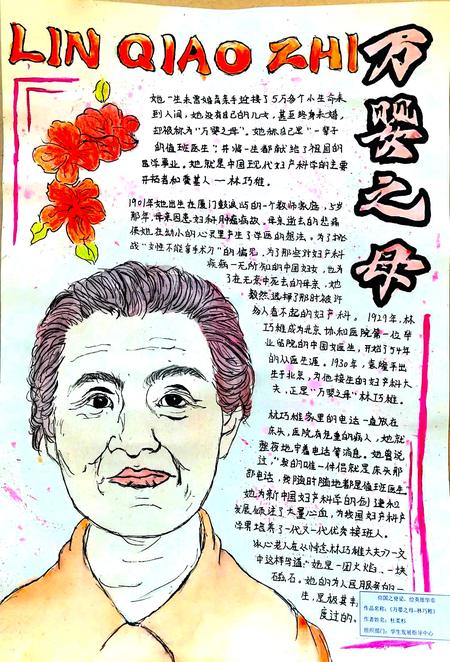 LIN QIAO ZHI
万婴之母
她一生未曾婚育亲手迎接了5万多个小生命来
到人间,她没有自己的儿女,甚至终身未婚,
却被称为“万婴之母”。她称自己是“一辈子
的值班医生”;并将一生都献给了祖国的
医学事业。她就是中国现代妇产科学的主要
开拓者和奠基人——林巧稚。
1901年她出生在厦门鼓浪屿的一个教师家庭,5岁
那年,母亲因患妇科肿瘤病故。母亲逝去的悲痛
使她在幼小的心灵里产生了学医的想法。为了挑
战“女性不能拿手术刀”的偏见,为了那些对妇产科
疾病一无所知的中国妇女,也为
了在无奈中死去的母亲,她
毅然选择了那时被许
多人看不起的妇产科。1929年,林
巧稚成为北京协和医院第一位毕
业留院的中国女医生,开始了54年
的从医生涯。1930年,袁隆平出
生于北京,为他接生的妇产科大
夫,正是“万婴之母”林巧稚。
林巧稚家里的电话一直放在
床头,医院有危重的病人,她就
整夜地守着电话等消息。她曾说
过,“我的唯一伴侣就是床头那
部电话,我随时随地都是值班医生”
她为新中国妇产科学的创建和
发展倾注了大量心血,为我国妇产科
学界培养了一代又一代优秀接班人。
冰心老人在《悼念林巧稚大夫》一文
中这样写道:“她是一团火焰、一块
磁石。她的为人民服务的一
生,是极其丰
度过的。
作品名称:《万婴之母-林巧稚》
组织部门:学生发展指导中心